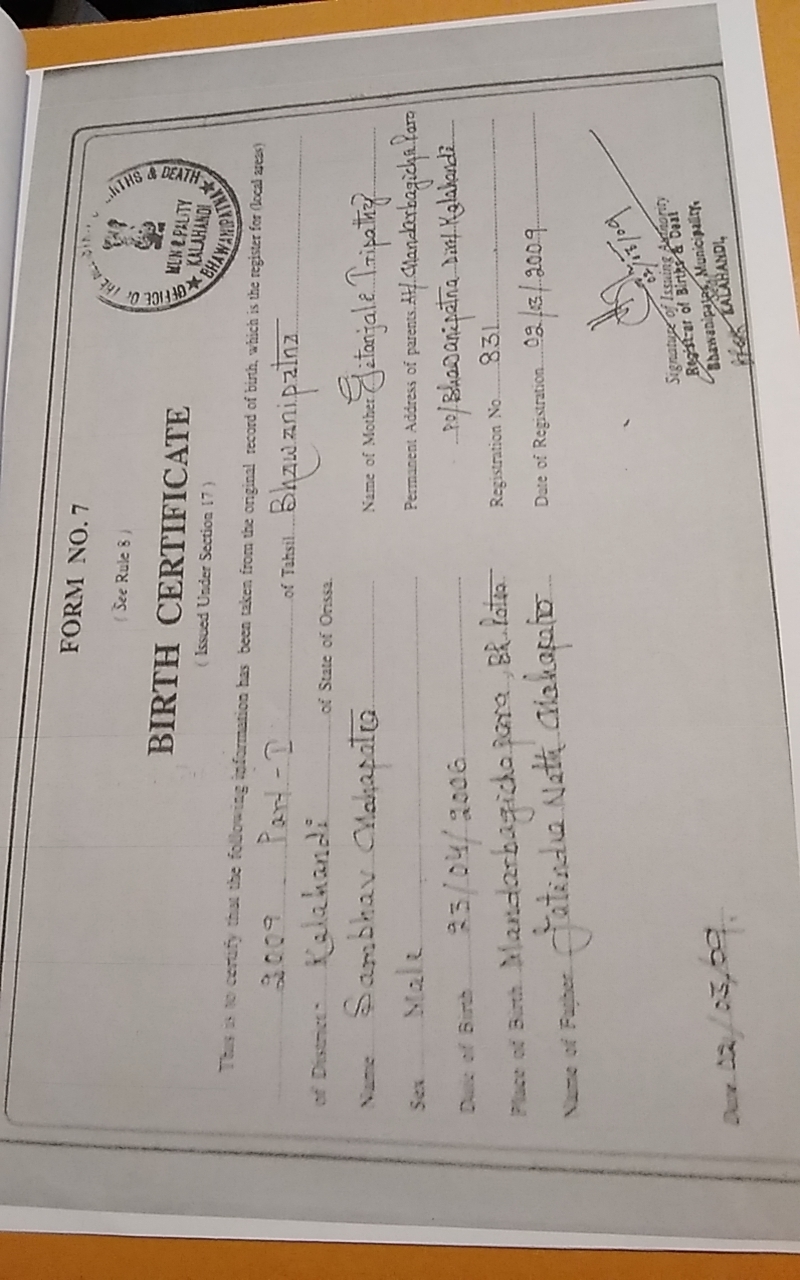 FORM NO. 7
( See Rule 8 )
BIRTH CERTIFICATE
( Issued Under Section 17 )
OFFICE OF THE & DEATH
MUNICIPALITY
KALAHANDI
BHAWANIPATNA
This is to certify that the following information has been taken from the original record of birth, which is the register for (local areas)
2009 Part-I of Tahsil Bhawanipatna
of District Kalahandi of State of Orissa.
Name Sambhav Mahapatra
Sex Male
Date of Birth 23/04/2006
Place of Birth Mandarbagicha para, BK. Patna
Name of Father Jatindra Nath Mahapatra
Name of Mother Gitanjale Tripathy
Permanent Address of parents At/ Mandarbagicha Para
Po/Bhawanipatna Dist/Kalahandi
Registration No. 831
Date of Registration 02/3/2009
Signature of Issuing Authority
Registrar of Births & Deat
Bhawanipatna Municipality,
KALAHANDI.
Date 02/03/09.